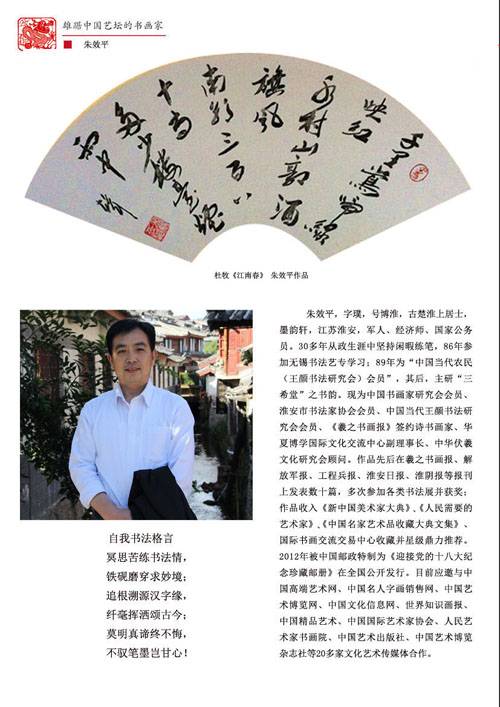 雄踞中国艺坛的书画家
朱效平
千里莺啼绿
映红
水村山郭酒
旗风
南朝三百八
十寺
多少楼台烟
雨中
杜牧《江南春》 朱效平作品
朱效平，字璞，号博淮，古楚淮上居士，
墨韵轩，江苏淮安，军人、经济师、国家公务
员。30多年从政生涯中坚持闲暇练笔，86年参
加无锡书法艺专学习；89年为“中国当代农民
（王颜书法研究会）会员”，其后，主研“三
希堂”之书韵，现为中国书画家研究会会员、
淮安市书法家协会会员、中国当代王颜书法研
究会会员、《羲之书画报》签约诗书画家、华
夏博学国际文化交流中心副理事长、中华伏羲
文化研究会顾问。作品先后在羲之书画报、解
放军报、工程兵报、淮安日报、淮阴报等报刊
上发表数十篇，多次参加各类书法展并获奖；
作品收入《新中国美术家大典》、《人民需要的
艺术家》、《中国名家艺术品收藏大典文集》、
国际书画交流交易中心收藏并星级鼎力推荐。
2012年被中国邮政特制为《迎接党的十八大纪
念珍藏邮册》在全国公开发行。目前应邀与中
国高端艺术网、中国名人字画销售网、中国艺
术博览网、中国文化信息网、世界知识画报、
中国精品艺术、中国国际艺术家协会、人民艺
术家书画院、中国艺术出版社、中国艺术博览
杂志社等20多家文化艺术传媒体合作。
自我书法格言
冥思苦练书法情，
铁砚磨穿求妙境；
追根溯源汉字缘，
纤毫挥洒颂古今；
莫明真谛终不悔，
不驭笔墨岂甘心！